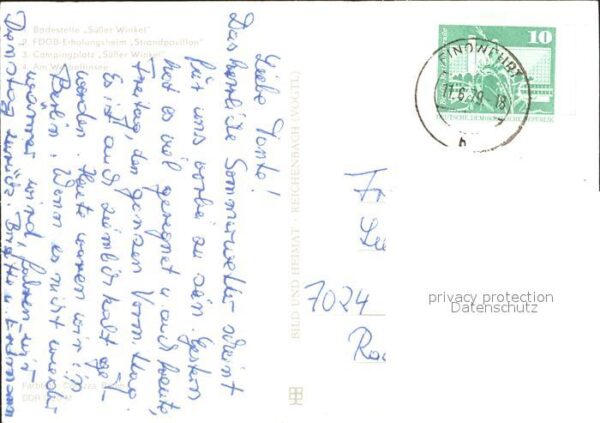 1. Badestelle „Süßer Winkel"
2. FDGB-Erholungsheim „Strandpavillon"
3. Campingplatz „Süßer Winkel"
4. Am Werbellinsee
Liebe Tante!
Das herrliche Sommerwetter scheint
für uns vorbei zu sein. Gestern
hat es viel geregnet u. auch heute,
Freitag, den ganzen Vorm. Hao
Es ist auch ziemlich kalt ge-
worden. Heute waren wir in
Berlin. Wenn es nicht wieder
wärmer wird, fahren wir
Dienstag zurück. Birgitte u. Erdmann
BILD UND HEIMAT · REICHENBACH (VOGTL)
10
DEUTSCHE DEMOKRATISCHE REPUBLIK
FINOWFURT
11.6.79-18
7024
privacy protection
Datenschutz
DDR